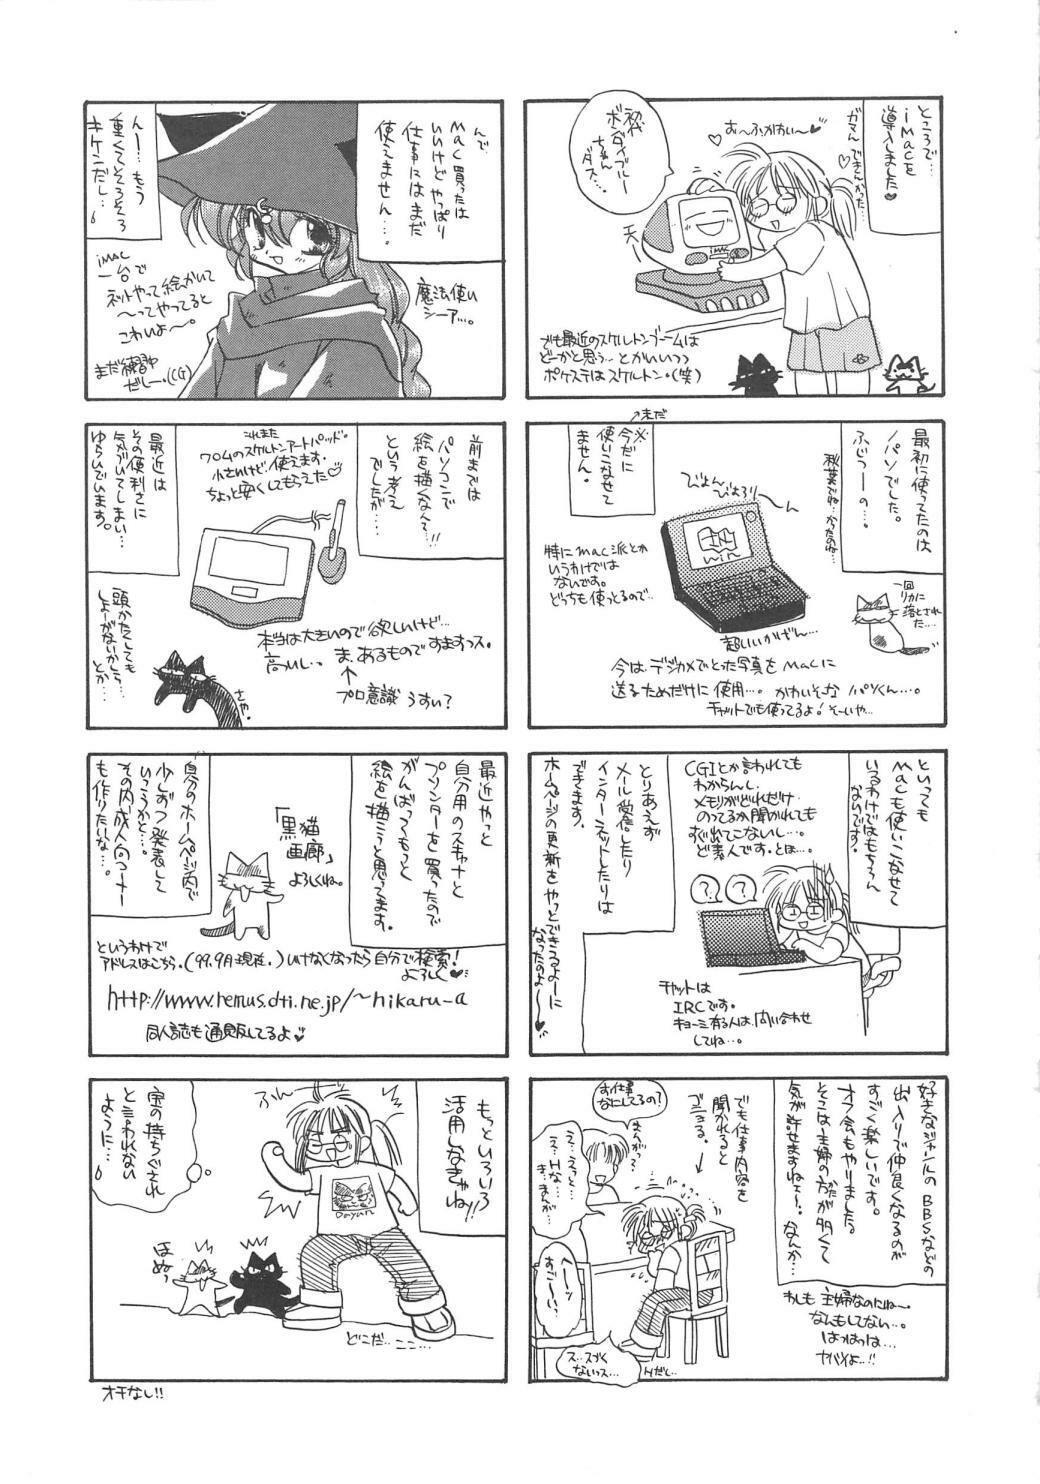 ところで…
iMacを
導入しました♥
ガマンできんかった…
お〜ふかわい〜♥
初代
ボンダイブルー
ちゃん
ダス…
iMAC
でも最近のスケルトンブームは
どーかと思う…とかいいつつ
ポケステはスケルトン。(笑)
最初に使ってたのは
パソでした。
ふじつーの…
秋葉でね…かったのね…
→未だ
※今だに
使いこなせて
ません。
びよんびよろりーん
win
特にmac派とか
いうわけでは
ないです。
どっちも使っとるので…
一回
リカに
落とされた…
超いいかげん…
今は、デジカメでとった写真をmacに
送るためだけに使用…。かわいそーなパソくん…。
チャットでも使ってるよ!そーいや…
といっても
macも使いこなせて
いるわけではもちろん
ないです。
CGIとか言われても
わからんし、
メモリがどれだけ
のってるか聞かれても
すぐ出てこないし…。
ど素人です。とほ…。
とりあえず
メール受信したり
インターネットしたりは
できます。
ホームページの更新をやっとできるよーに
なったのよ〜♥
??
チャットは
IRCです。
キョーミ有る人は、問い合わせ
してね…。
好きなジャンルのBBSなどの
出入りで仲良くなるのが
すごく楽しいです。
オフ会もやりました。
そこは主婦の方だが多くて
気が許せますねェ…。なんか…
わしも主婦なのにね〜
なんもしてない…。
はっはっは…
ヤバイよ…!!
でも仕事内容を
聞かれると
ゴニョる。
お仕事
なにしてるの?
まんが?
え…えっと…
え…Hな…
ま…まんが…
へーっ
すごーい!
ス…スゴく
ないっス…
Hだし…
んで、
mac買ったは
いいけどやっぱり
仕事にはまだ
使えません…。
んー…もう
重くてそろそろ
キケンだし…。
iMAC
一台で
ネットやって絵かいて
〜ってやってると
こわいよ〜。
まだ練習中
だしー。(CG)
魔法使い
シーア…。
前までは
パソコンで
絵を描くなんて!!
という考え
でしたが…
これまた
ワコムのスケルトンアートパッド。
小さいけど、使えます。
ちょっと安くしてもらえた♡
最近は
その便利さに
気がついてしまい…
ゆらいでいます。
本当は大きいので欲しいけど…
高いし… ま、あるものですますっス。
↑
プロ意識うすい?
頭かたくしても
しょーがないかしら…
とか…
さた。
最近やっと
自分用のスキャナと
プリンターを買ったので
がんばってもっと
絵を描こうと思ってます。
「黒猫
画廊」
よろしくね。
自分のホームページ内で
少しずつ発表して
いこうかと…
その内成人向コーナー
も作りたいな。
というわけで
アドレスはこちら。(99.9月現在。)いけなくなったら自分で検索!
よろしく♥
http://www.remus.dti.ne.jp/~hikaru-a
同人誌も通販してるよ♥
もっといろいろ
活用しなきゃね!!
ぶんっ
宝の持ちぐされ
と言われない
ように…。
Dayan
ほぬっ
どこだ…ここ…
オチなし!!